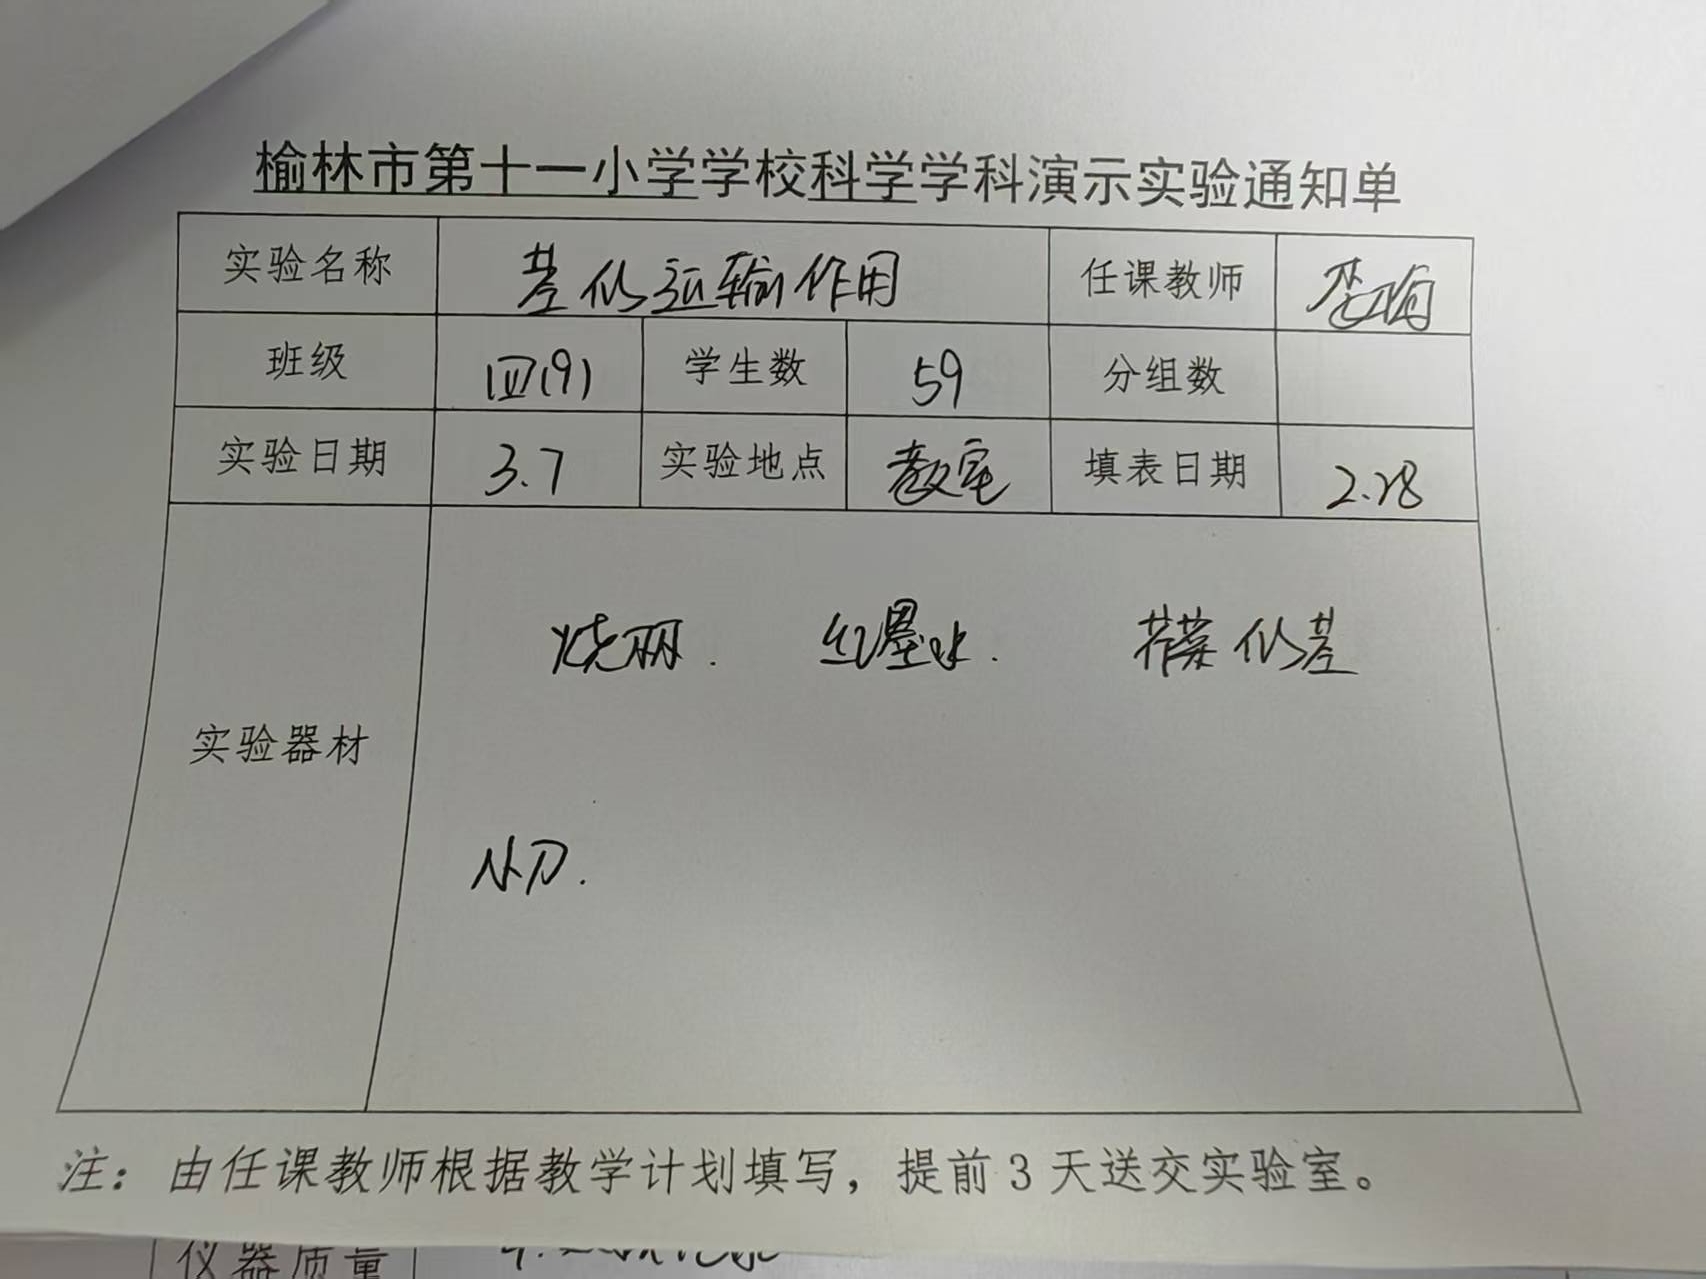 榆林市第十一小学学校科学学科演示实验通知单
实验名称 茎的运输作用 任课教师
班级 四(9) 学生数 59 分组数
实验日期 3.7 实验地点 教室 填表日期 2.28
烧瓶. 红墨水. 芹菜的茎
实验器材
小刀.
注：由任课教师根据教学计划填写，提前3天送交实验室。
仪器质量